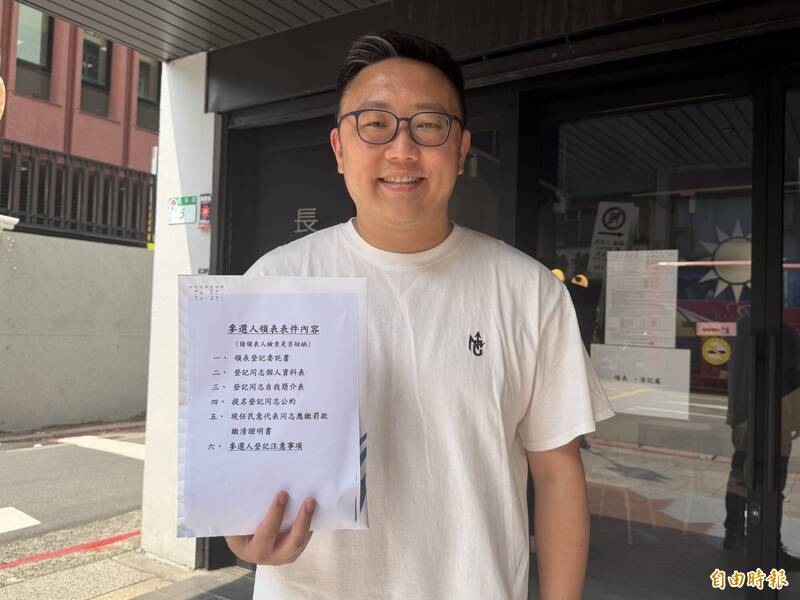 長
5
參選人領表表件內容
（請領表人檢查是否短缺）
一、 領表登記委託書
二、 登記同志個人資料表
三、 登記同志自我簡介表
四、 提名登記同志公約
五、 現任民意代表同志應繳罰款
繳清證明書
六、 參選人登記注意事項
領表、登記處
自由時報